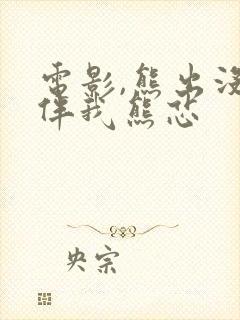 電影,熊出没
伴我熊芯
央宗